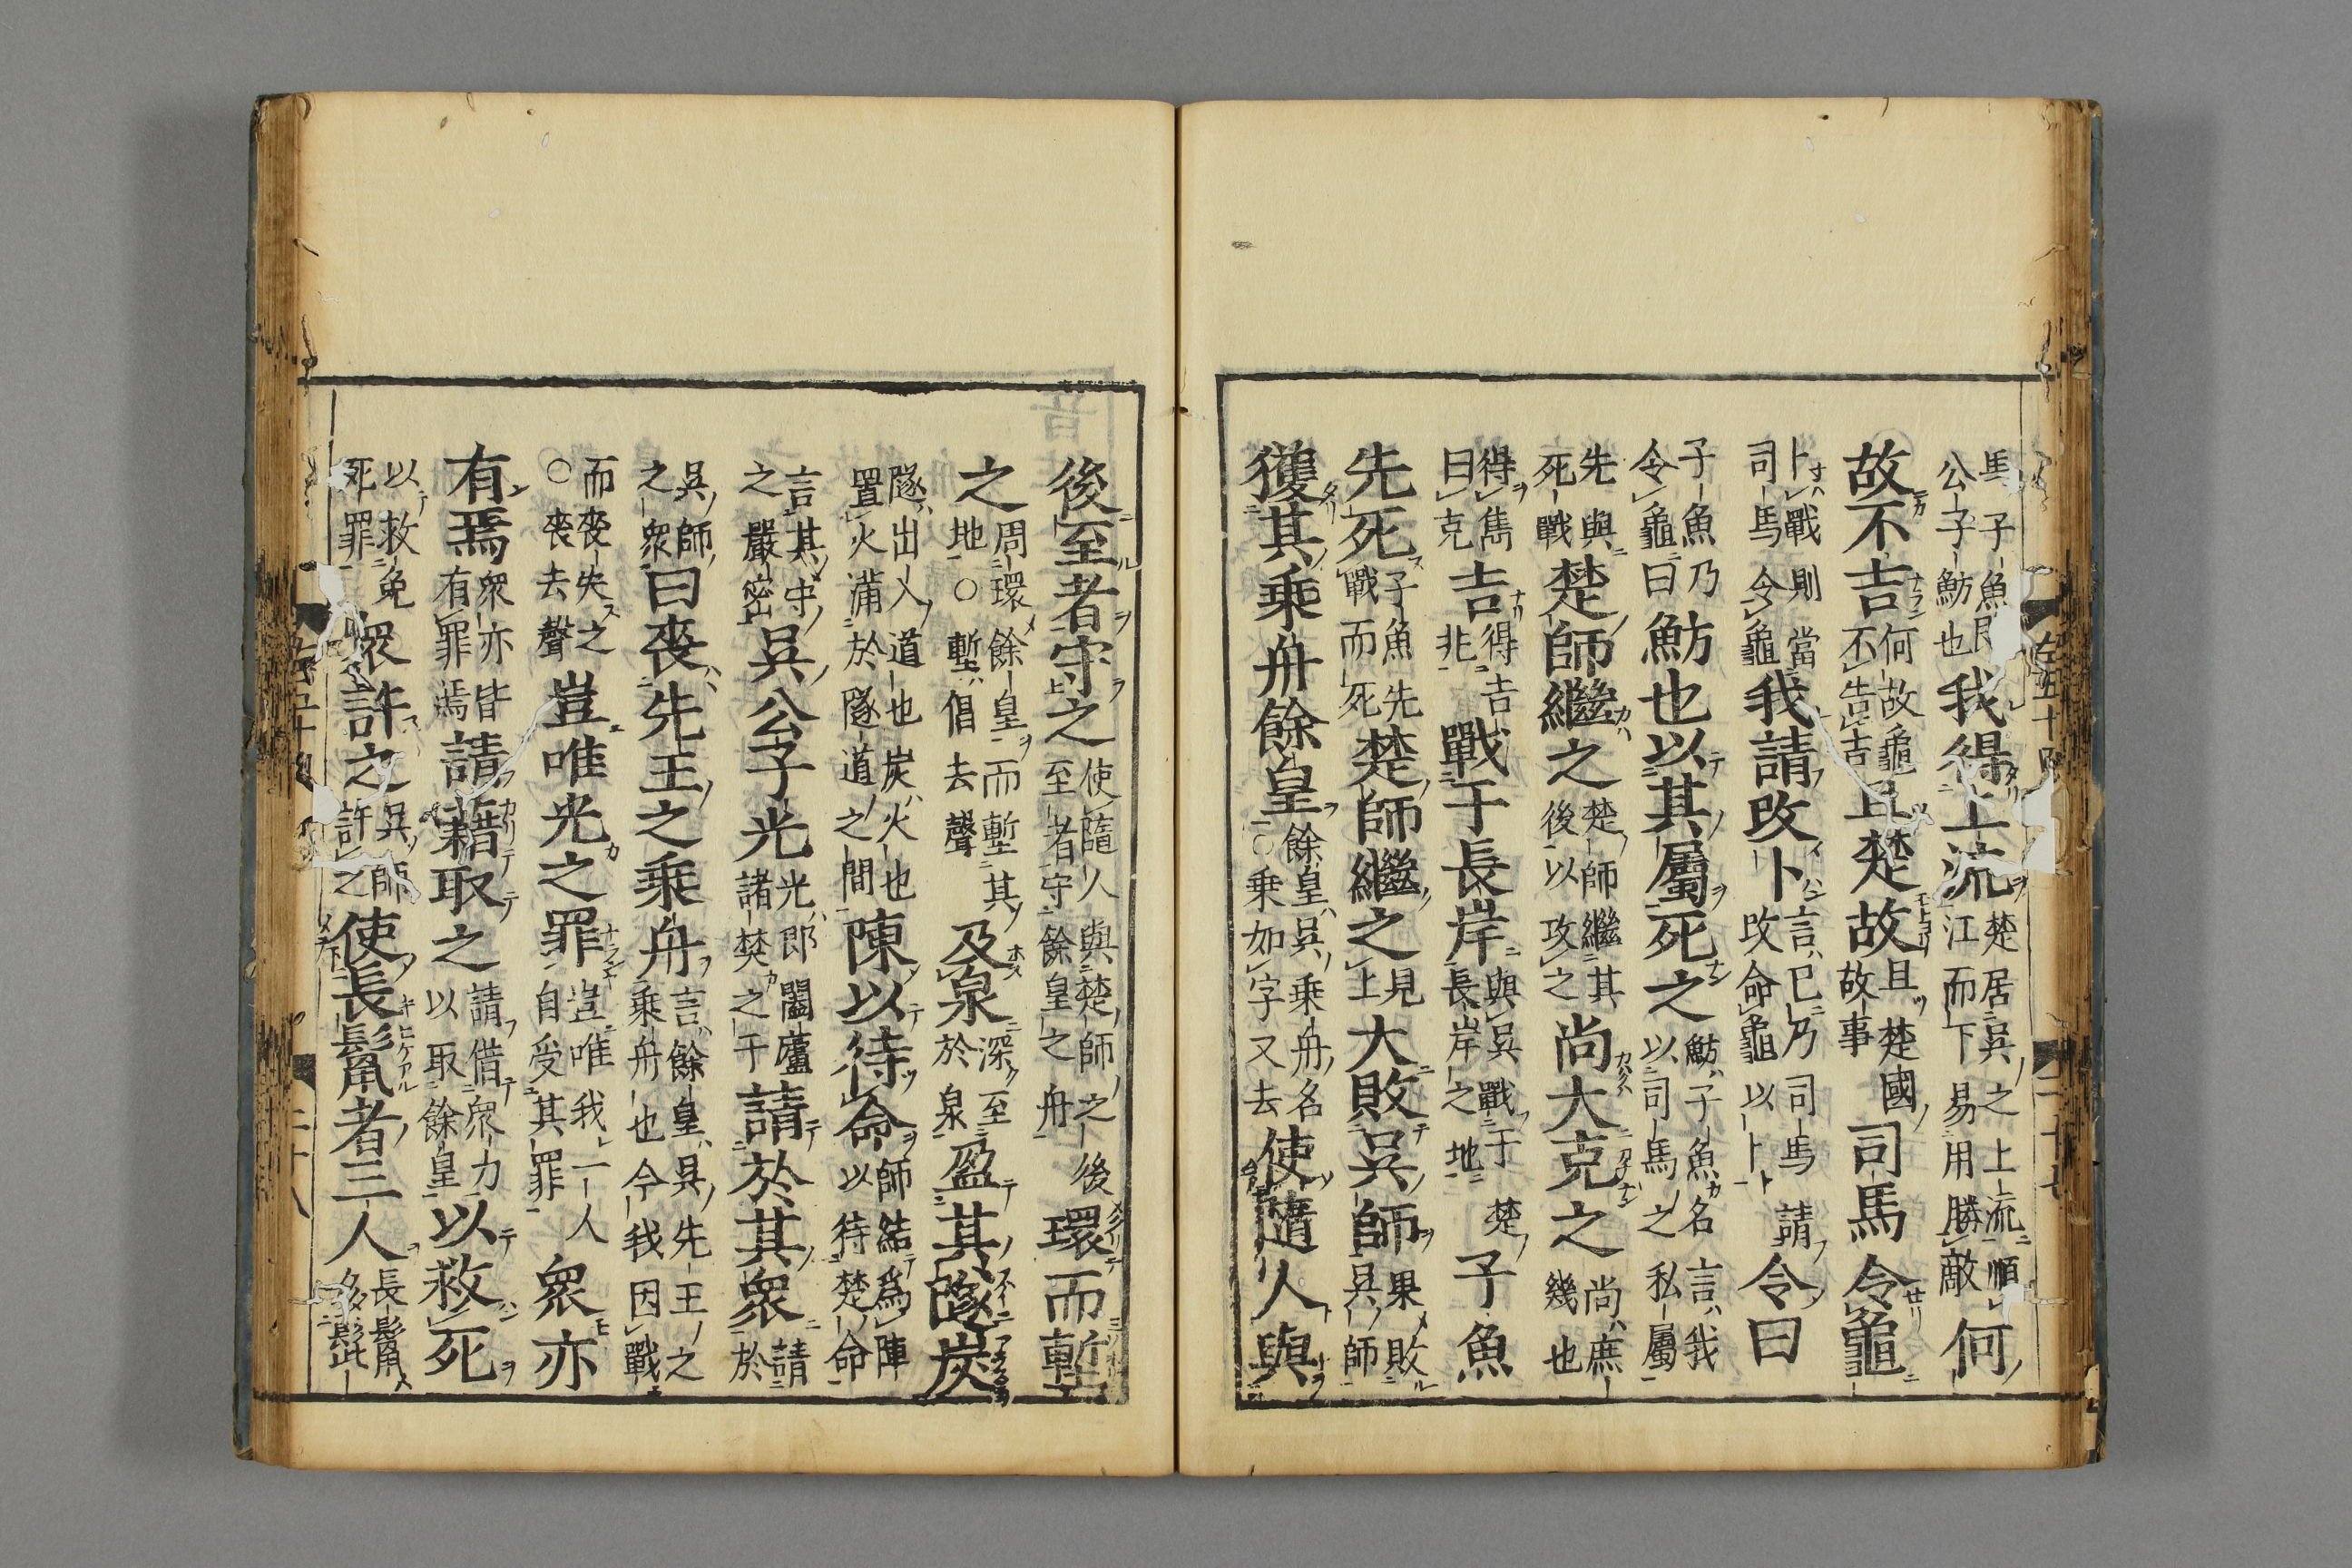 馬子魚公子魴也我得上流楚居吳之上流順江而下易用勝敵何
故不吉何故龜不告吉且楚故且楚國故事司馬令龜
卜戰則當司馬令龜我請改卜言已乃司馬請改命龜以卜令曰
子魚乃令龜曰魴也以其屬死之魴子魚名言我以司馬之私屬
先與死戰楚師繼之楚師繼其後以攻之尚大克之尚庶幾也
得雋曰克吉得吉兆戰于長岸與吳戰于楚長岸之地子魚
先死子魚先戰而死楚師繼之見上大敗吳師果敗吳師
獲其乗舟餘皇餘皇吳乗舟名○乗如字又去使隨人與
後至者守之使隨人與楚師之後至者守餘皇之舟環而塹
之周環餘皇而塹其地○塹倡去聲及泉深至於泉盈其隧炭
隧出入道也炭火也置火滿於隧道之間陳以待命師結爲陣以待楚命
言其守之嚴密吳公子光光郎闔廬諸樊之子請於其衆請於
吳師之衆曰喪先王之乗舟言餘皇吳先王之乗舟也今我因戰
而喪失之○喪去聲豈唯光之罪豈唯我一人自受其罪衆亦
有焉衆亦皆有罪焉請藉取之請借衆力以取餘皇以救死
以救免死罪衆許之吳師許之使長鬣者三人長鬣多髭